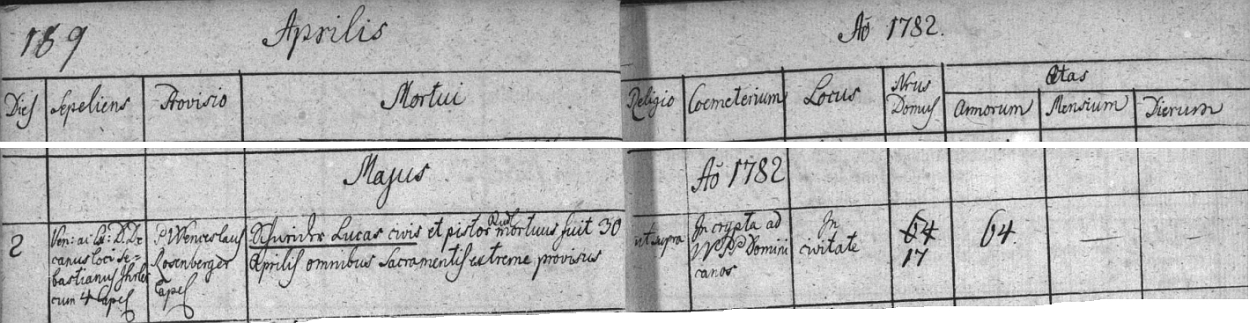 189 Aprilis Aõ 1782.
Dies Sepeliens Provisio Mortui Religio Coemeterium Locus Nrus Domus Ætas
Annorum Mensium Dierum
Majus Aõ 1782
2
Ven: ac D: D: De
canus loci Se=
bastianus
cum 4 Capel
P. Wenceslaus
Rosenberger
Capel
Lucas civis et pistor mortuus fuit 30
Aprilis omnibus Sacramentis extreme provisus
ut supra
In crypta ad
PP Domini
canos
In
civitate
64
17
64.